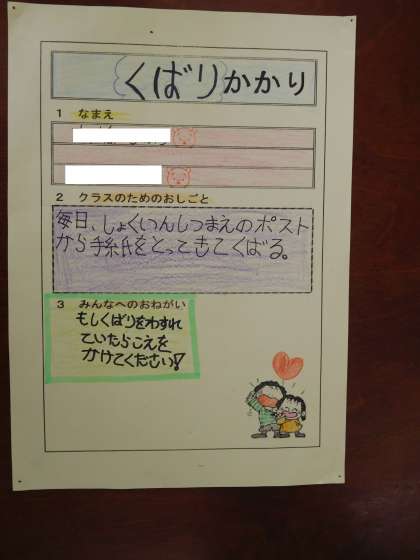 くばりかかり
1 なまえ
2 クラスのためのおしごと
毎日、しょくいんしつまえのポスト
から手紙をとってきてくばる。
3 みんなへのおねがい
もしくばりをわすれ
ていたらこえを
かけてください!